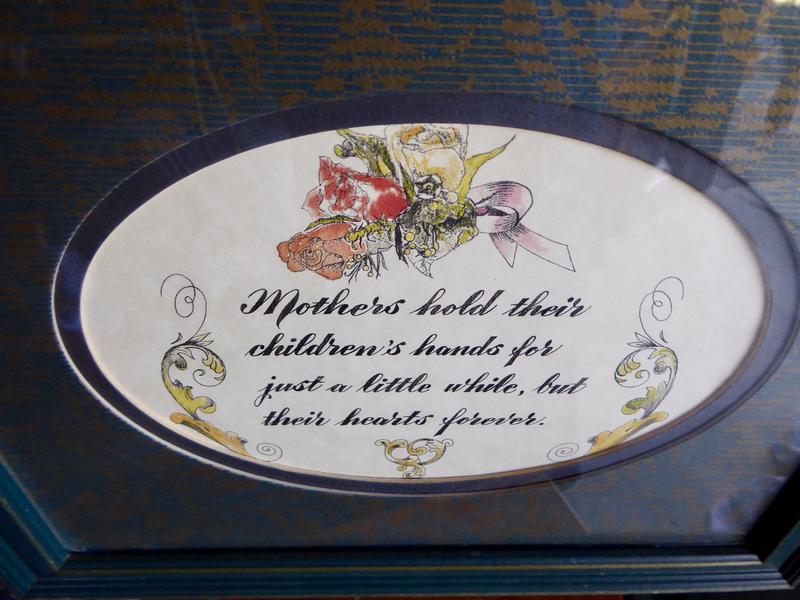 Mothers hold their
children's hands for
just a little while, but
their hearts forever.